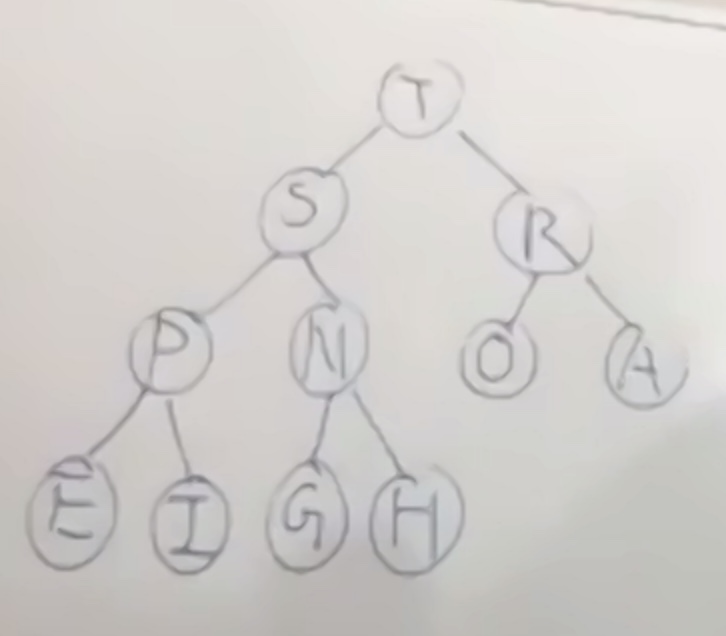 T
S R
P N O A
E I G H